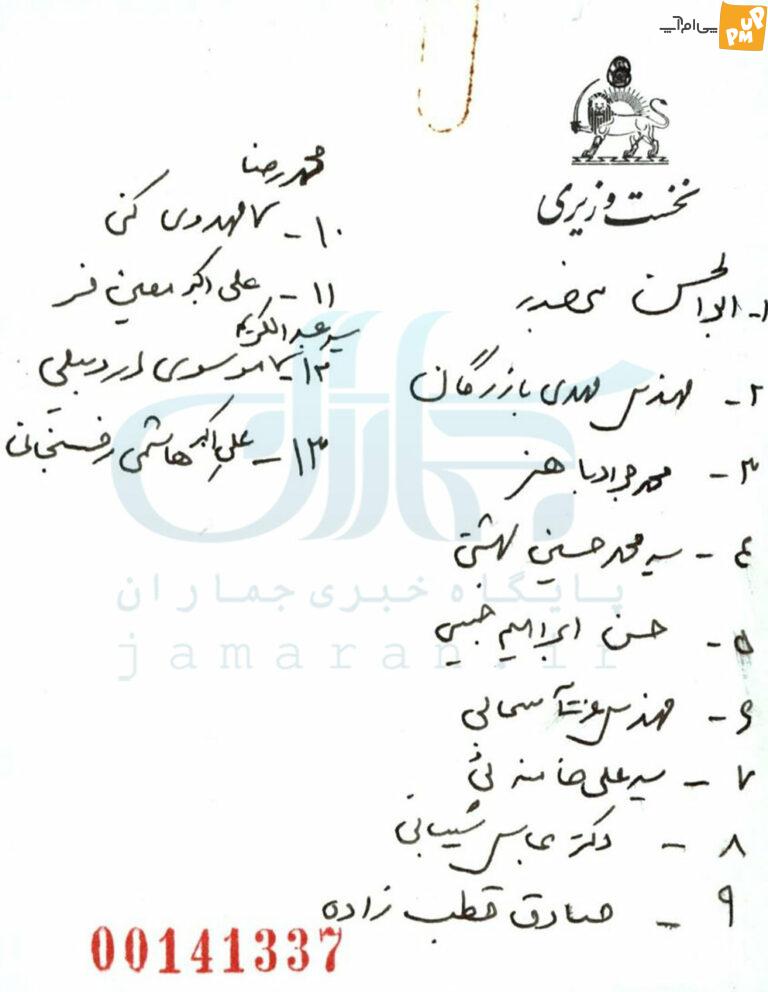 پی‌ام‌آپ
PM UP
نخست وزیری
۱- ابوالحسن
۲- مهندس مهدی بازرگان
۳- محمد جواد باهنر
۴- سید محمد حسینی بهشتی
۵- حسن ابراهیم حبیبی
۶- مهندس عزت‌ا... سحابی
۷- سید علی خامنه‌ئی
۸- دکتر عباس شیبانی
۹- صادق قطب زاده
محمد رضا
۱۰- مهدوی کنی
۱۱- علی اکبر معین فر
سید عبدالکریم
۱۲- موسوی اردبیلی
۱۳- علی اکبر هاشمی رفسنجانی
جماران
پایگاه خبری جماران
jamaran.ir
00141337